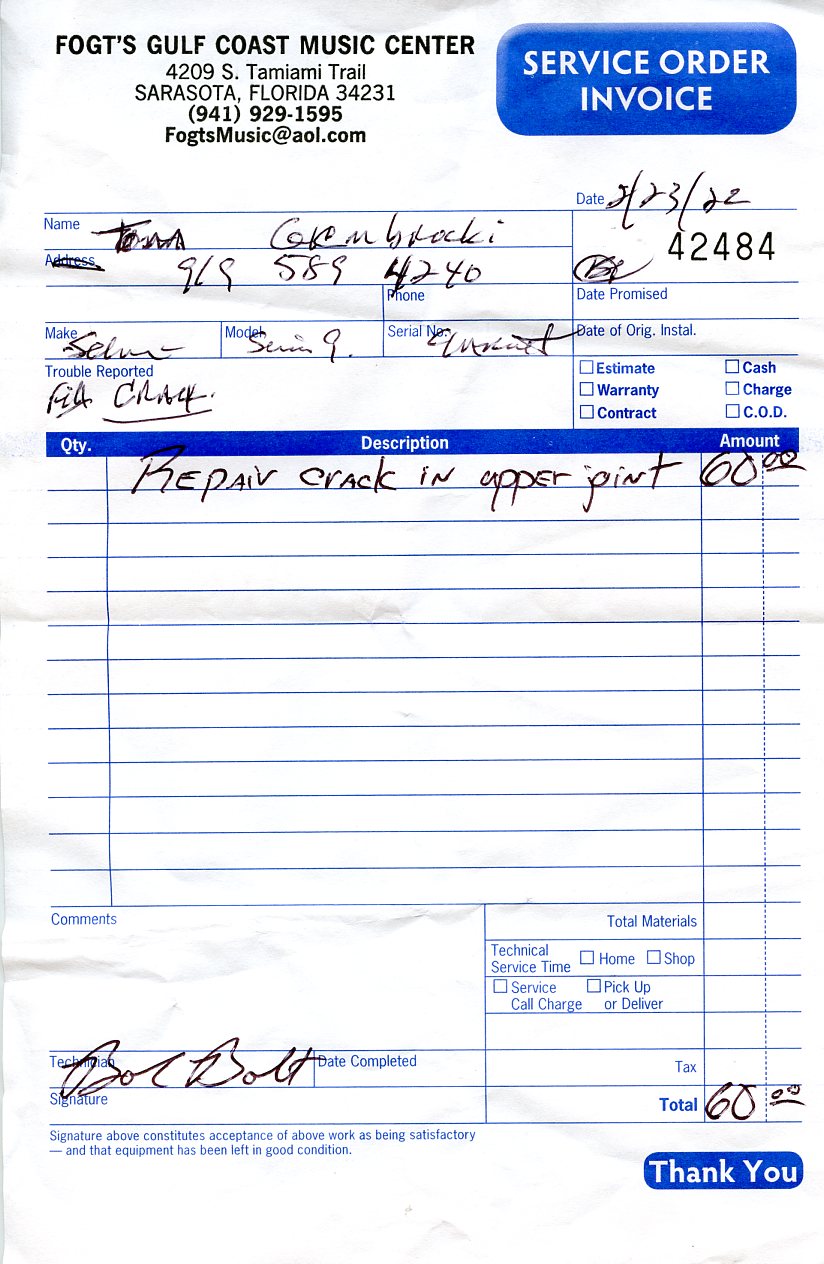 FOGT'S GULF COAST MUSIC CENTER
4209 S. Tamiami Trail
SARASOTA, FLORIDA 34231
(941) 929-1595
FogtsMusic@aol.com
SERVICE ORDER
INVOICE
Date 2/23/22
Name Tom
42484
Address
919 589 4240
Phone
Date Promised
Make Selmer
Model Series 9.
Serial No.
Date of Orig. Instal.
Trouble Reported
Fill CRACK.
Estimate
Cash
Warranty
Charge
Contract
C.O.D.
Qty. Description Amount
REPAIR CRACK IN upper joint 60.00
Comments
Total Materials
Technical
Service Time
Home
Shop
Service
Call Charge
Pick Up
or Deliver
Technician Bob Bolt
Date Completed
Tax
Signature
Total 60.00
Signature above constitutes acceptance of above work as being satisfactory
— and that equipment has been left in good condition.
Thank You